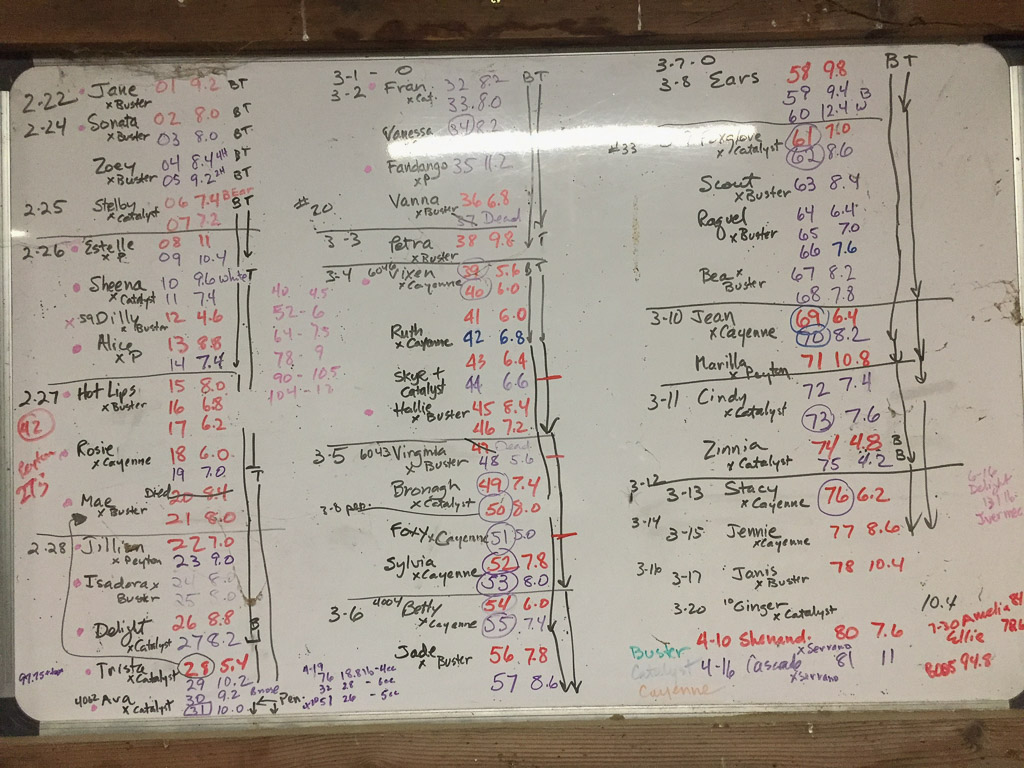 2-22 Jane 01 9.2 BT
x Buster
2-24 Sonata 02 8.0 BT
x Buster 03 8.0 BT
Zoey 04 8.4 BT
x Buster 05 9.2 BT
2-25 Stelby 06 7.4 BEar BT
x Catalyst 07 7.2
2-26 Estelle 08 11
x P 09 10.4
Sheena 10 9.6 white T
x Catalyst 11 7.4
x 59 Dilly 12 4.6
x Buster
Alice 13 8.8
x P 14 7.4
2-27 Hot Lips 15 8.0
x Buster 16 6.8
42 17 6.2
Rosie 18 6.0
x Cayenne 19 7.0 T
Peyton
Mae Died 20 8.4
x Buster 21 8.0
2-28 Jillian 22 7.0
x Peyton 23 9.0
Isadora x 24 8.0
Buster 25 8.0
Delight 26 8.8 B
x Catalyst 27 8.2
Trista 28 5.4
x Catalyst 29 10.2
4062 Ava 30 9.2 Bnose
x Catalyst 31 10.0 Pen
40 4.5
52 - 6
64 - 7.5
78 - 9
90 - 10.5
104 - 12
4-19 76 18.8 lb - 4cc
32 28 - 6cc
51 26 - 5cc
3-1 - 0 BT
3-2 Fran 32 8.2
x Cat. 33 8.0
Vanessa 34 8.2
Fandango 35 11.2
x P
Vanna 36 6.8
x Buster 37 Dead
#20
3-3 Petra 38 9.8 T
x Buster
3-4 6046 Vixen 39 5.6 BT
x Cayenne 40 6.0
41 6.0
Ruth 42 6.8
x Cayenne
43 6.4
Skye + 44 6.6
Catalyst
Hallie 45 8.4
x Buster 46 7.2
3-5 6043 Virginia 47 Dead
x Buster 48 5.6
Bronagh 49 7.4
x Catalyst 50 8.0
3-6
Foxy 51 5.0
x Cayenne
Sylvia 52 7.8
x Cayenne 53 8.0
3-6 4004 Betty 54 6.0
x Cayenne 55 7.4
Jade 56 7.8
x Buster
57 8.6
3-7-0 BT
3-8 Ears 58 9.8
59 9.4 B
60 12.4 W
#33 Foxglove 61 7.0
x Catalyst 62 8.6
Scout 63 8.4
x Buster
Raquel 64 6.4
x Buster 65 7.0
66 7.6
Bea x 67 8.2
Buster 68 7.8
3-10 Jean 69 6.4
x Cayenne 70 8.2
Marilla 71 10.8
x Peyton
3-11 Cindy 72 7.4
x Catalyst 73 7.6
Zinnia 74 4.8 B
x Catalyst 75 4.2 B
3-12
3-13 Stacy 76 6.2
x Cayenne
3-14
3-15 Jennie 77 8.6
x Cayenne
3-16
3-17 Janis 78 10.4
x Buster
3-20 Ginger
x Catalyst
10.4
Buster 4-10 Shenand. 80 7.6
x Serrano
Catalyst 4-16 Cascade 81 11
x Serrano
Cayenne
6-16
Delight
Iverme
7-20 Amelia 81
Ellie 78.6
BOBS 94.8